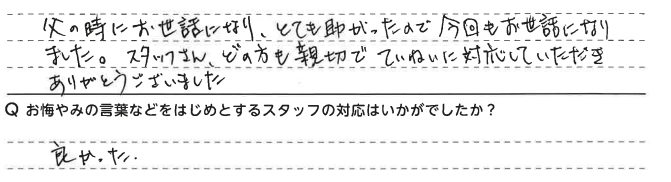 父の時にお世話になり、とても助かったので今回もお世話になり
ました。スタッフさん、どの方も親切でていねいに対応していただき
ありがとうございました
Q お悔やみの言葉などをはじめとするスタッフの対応はいかがでしたか？
良かった.